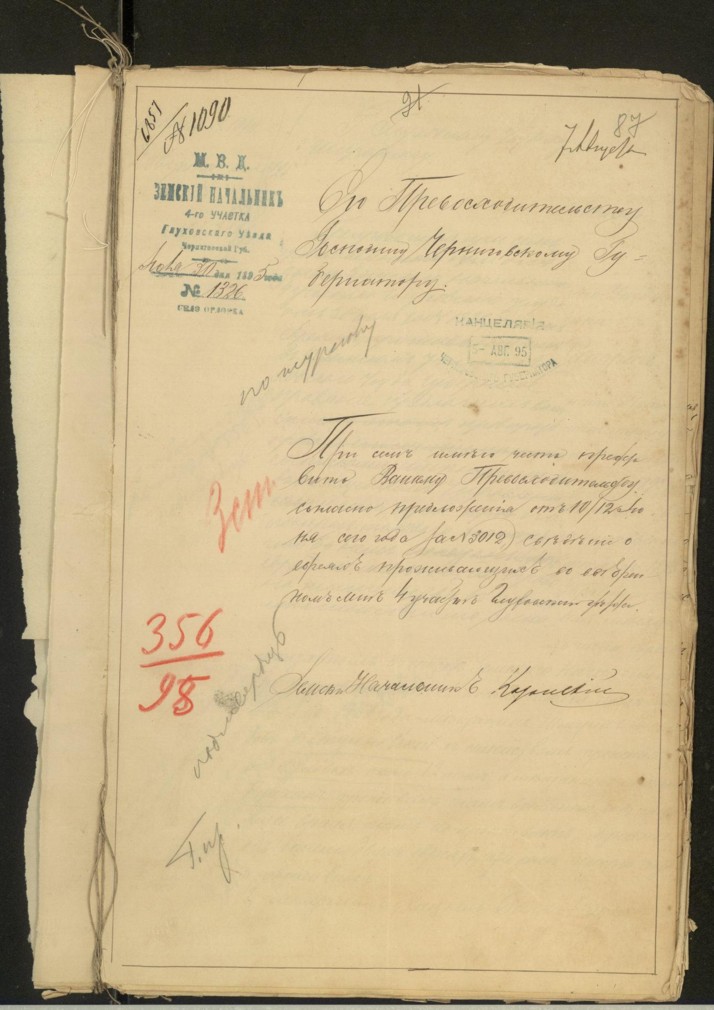 6851
№ 1090
91
87
7 Августа
М. В. Д.
ЗЕМСКІЙ НАЧАЛЬНИКЪ
4-го УЧАСТКА
Глуховского Уѣзда
Черниговской Губ.
Іюля 30 дня 1895 года
№ 1326
Его Превосходительству
Господину Черниговскому Гу-
бернатору.
КАНЦЕЛЯРІЯ
АВГ. 95
ГУБЕРНАТОРА
по
При семъ имѣю честь предста
вить Вашему Превосходительству
согласно предложенія отъ 10/12 Ію
ня сего года за № 3012) свѣдѣнія о
евреяхъ проживающихъ во
4 участкѣ Глуховскаго уѣзда.
356
95
Земскій Начальникъ